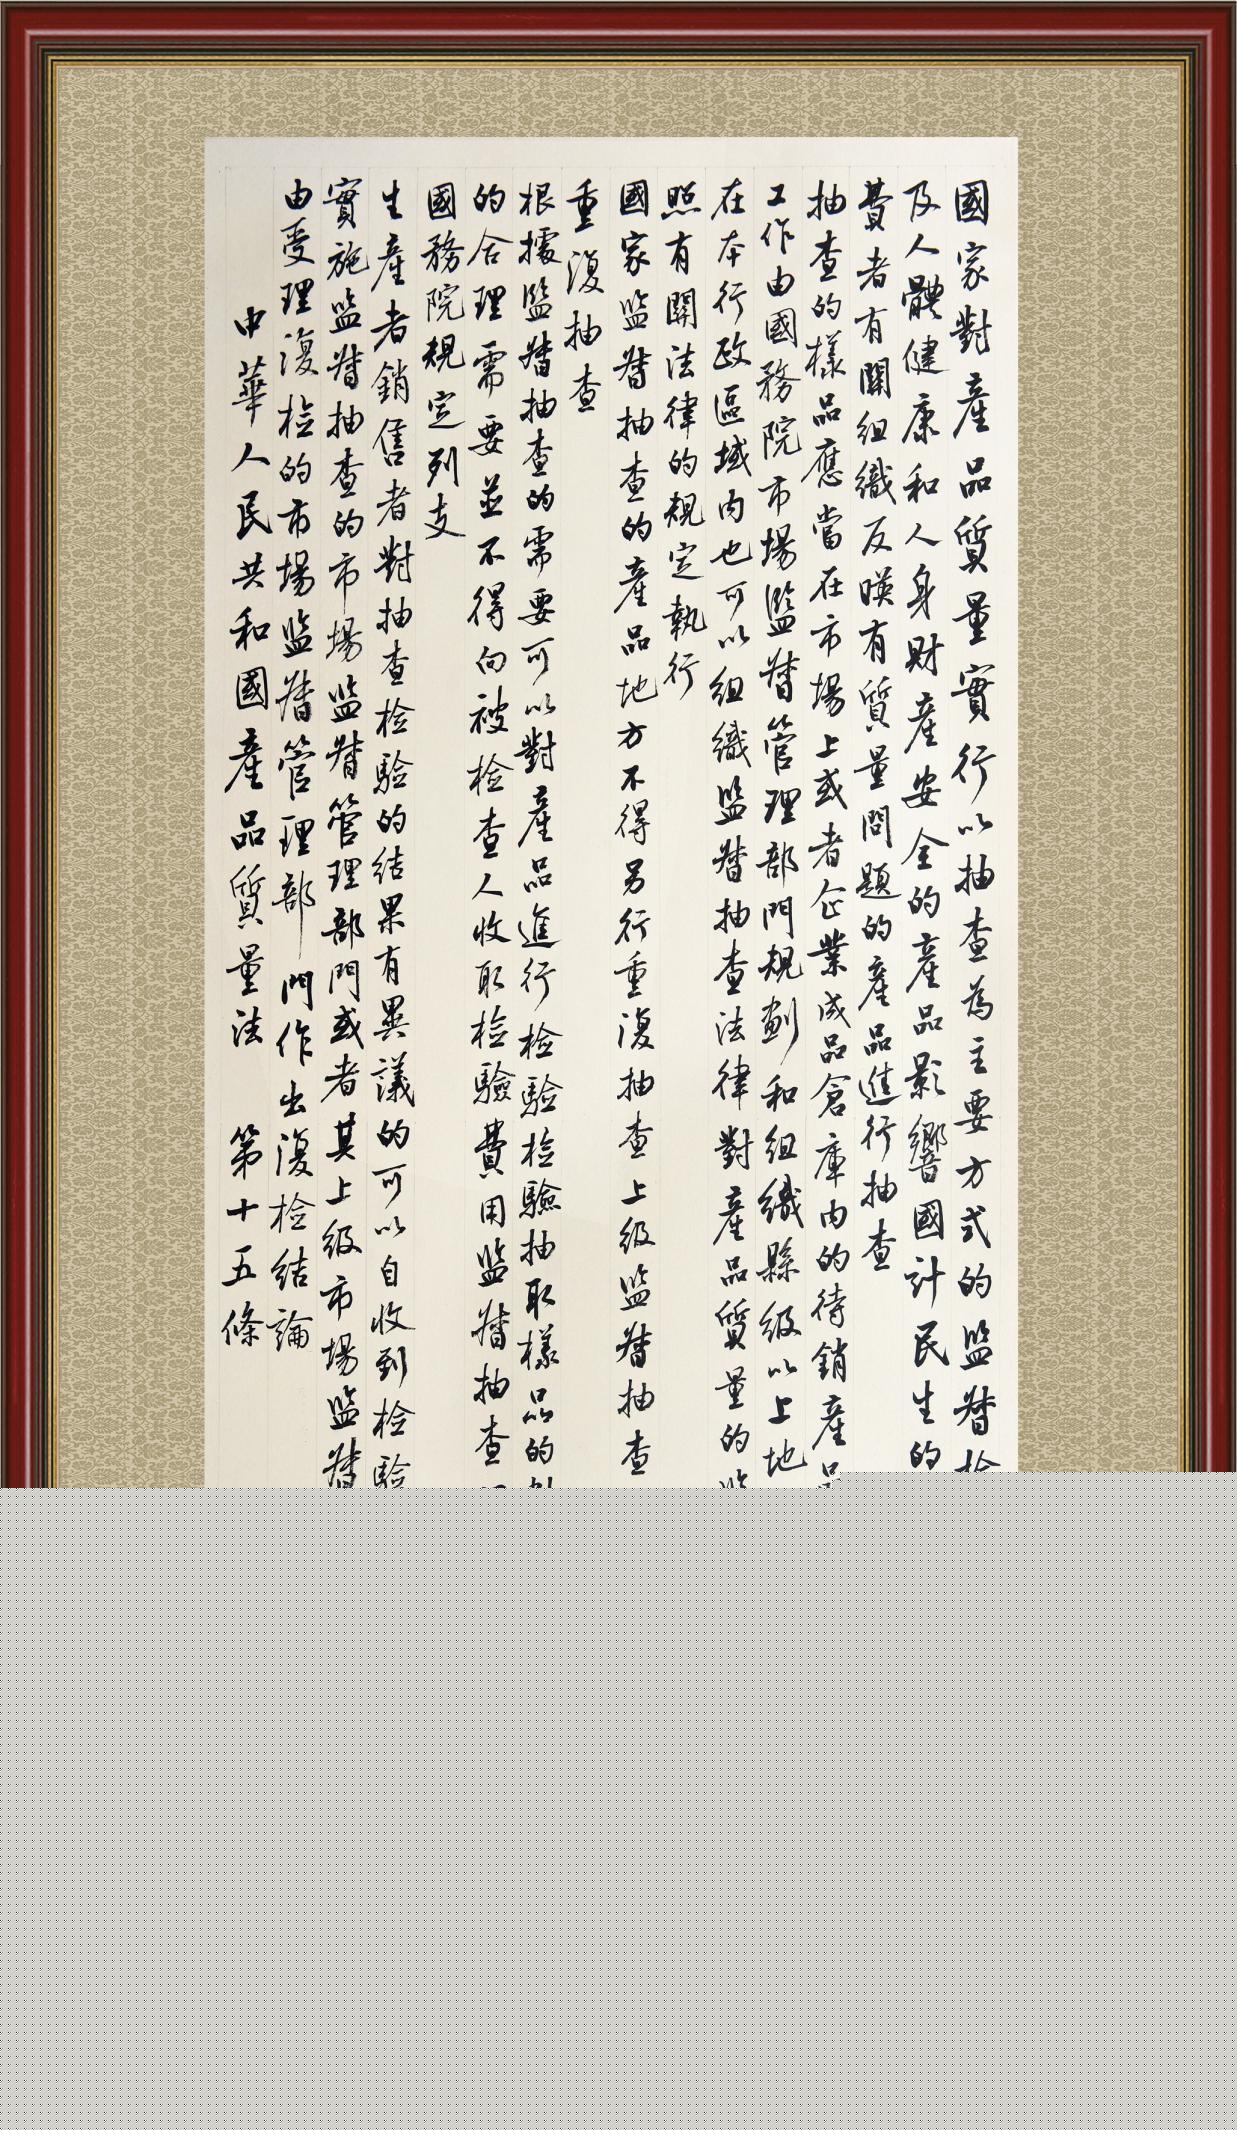 國家對產品質量實行以抽查為主要方式的监督
及人體健康和人身財產安全的產品影響國計民生的
費者有關組織反映有質量問題的產品進行抽查
抽查的樣品應當在市場上或者企業成品倉庫内的待銷產
工作由國務院市場监督管理部門規劃和組織縣级以上地
在本行政區域内也可以組織监督抽查法律對產品質量的
照有關法律的規定執行
國家监督抽查的產品地方不得另行重復抽查上级监督抽查
重復抽查
根據监督抽查的需要可以對產品進行检验检驗抽取樣品的
的合理需要並不得向被检查人收取检驗費用监督抽查
國務院規定列支
生產者銷售者對抽查检验的结果有異議的可以自收到检验
實施监督抽查的市場监督管理部門或者其上级市場监督
由受理復检的市場监督管理部門作出復检结論
中華人民共和國產品質量法 第十五條